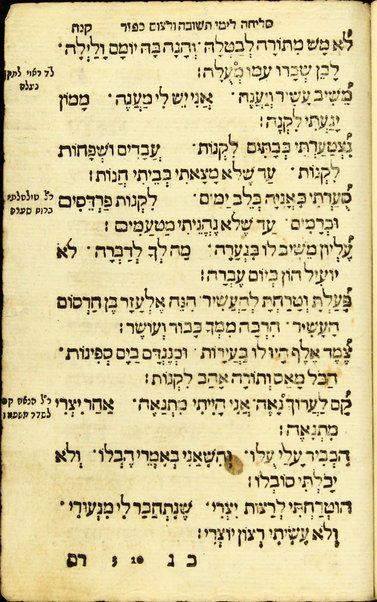 סליחה לימי תשובה ולצום כפור קנח
לֹא מָשׁ מִתּוֹרָה לְבַטְּלָהּ · וְהָגָה בָּהּ יוֹמָם וָלַיְלָה ·
לָכֵן שְׂכָרוֹ עִמּוֹ מְעֻלֶּה :
מֵשִׁיב עָשִׁיר וְיַעֲנֶה · אֲנִי יֵשׁ לִי מַעֲנֶה · מָמוֹן
יָגַעְתִּי לִקְנֹה :
נִצְטַעַרְתִּי בְּבָתִּים לִקְנוֹת · עֲבָדִים וּשְׁפָחוֹת
לִקְנוֹת · עַד שֶׁלֹּא מָצָאתִי בְּבֵיתִי חֲנוֹת :
סֹעַרְתִּי בָּאֳנִיָּה בְּלֵב יַמִּים · לִקְנוֹת פַּרְדֵּסִים
וּכְרָמִים · עַד שֶׁלֹּא נֶהֱנֵיתִי מִטַּעֲמִים :
עֶלְיוֹן מֵשִׁיב לוֹ בִּגְעָרָה · מַה לְּךָ לְדַבְּרָה · לֹא
יוֹעִיל הוֹן בְּיוֹם עֶבְרָה :
פָּעַלְתָּ וְטָרַחְתָּ לְהַעֲשִׁיר · הִנֵּה אֶלְעָזָר בֶּן חַרְסוֹם
הֶעָשִׁיר · הַרְבֵּה מִמְּךָ כָּבוֹד וְעוֹשֶׁר :
צֶמֶד אֶלֶף הָיוּ לוֹ בַּעֲיָרוֹת · וּכְנֶגְדָּם בַּיָּם סְפִינוֹת ·
הַכֹּל מָאַס וְתוֹרָה אָהַב לִקְנוֹת :
קָם לַעֲרוֹךְ נָאֶה · אֲנִי הָיִיתִי מִתְנָאֶה · אַחַר יִצְרִי
מִתְנָאֶה :
הִכְבִּיר עָלַי עֻלּוֹ · וְהִשִּׁאַנִי בְּאִמְרֵי הֶבְלוֹ · וְלֹא
יָכֹלְתִּי סוֹבְלוֹ :
הוּטְרַחְתִּי לִרְצוֹת יִצְרִי · שֶׁנִּתְחַבֵּר לִי מִנְּעוּרַי ·
וְלֹא עָשִׂיתִי רְצוֹן יוֹצְרִי :
כ נ 20 3 רם